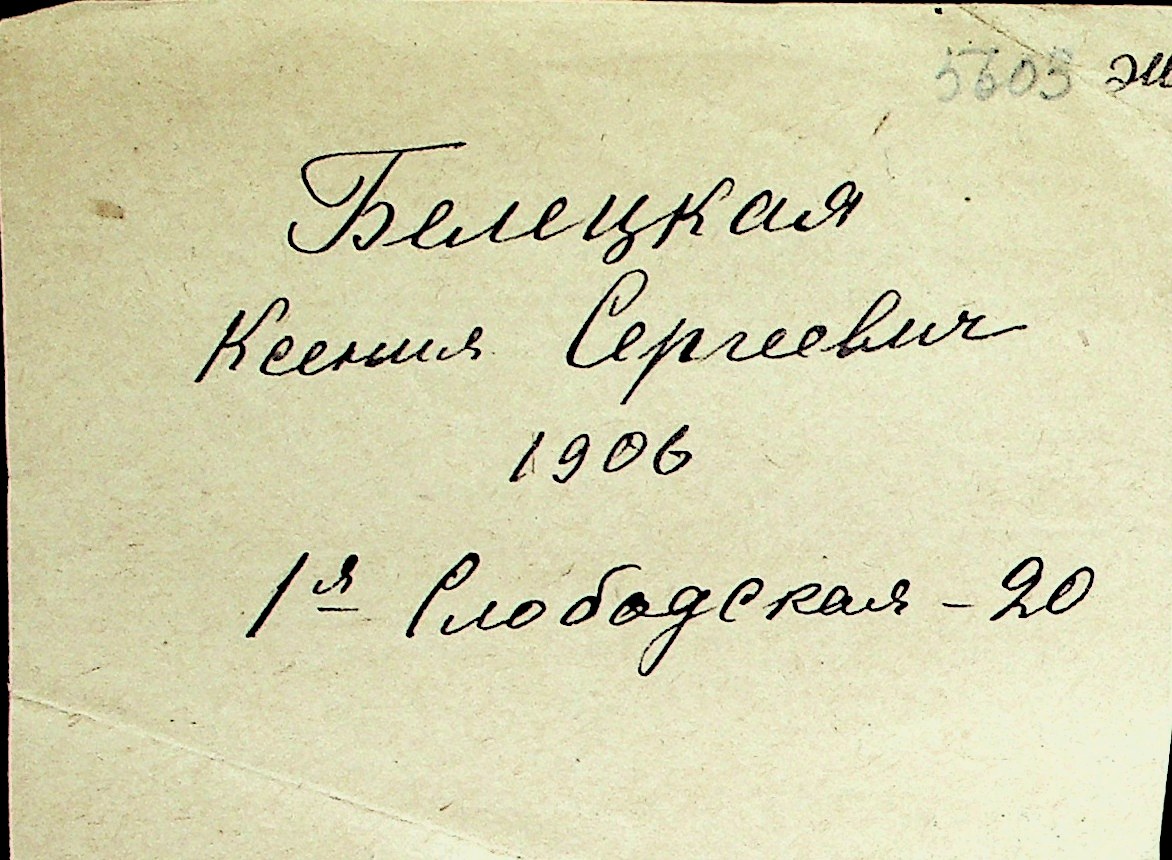 5603
Белецкая
Ксения Сергеевич
1906
1я Слободская - 20